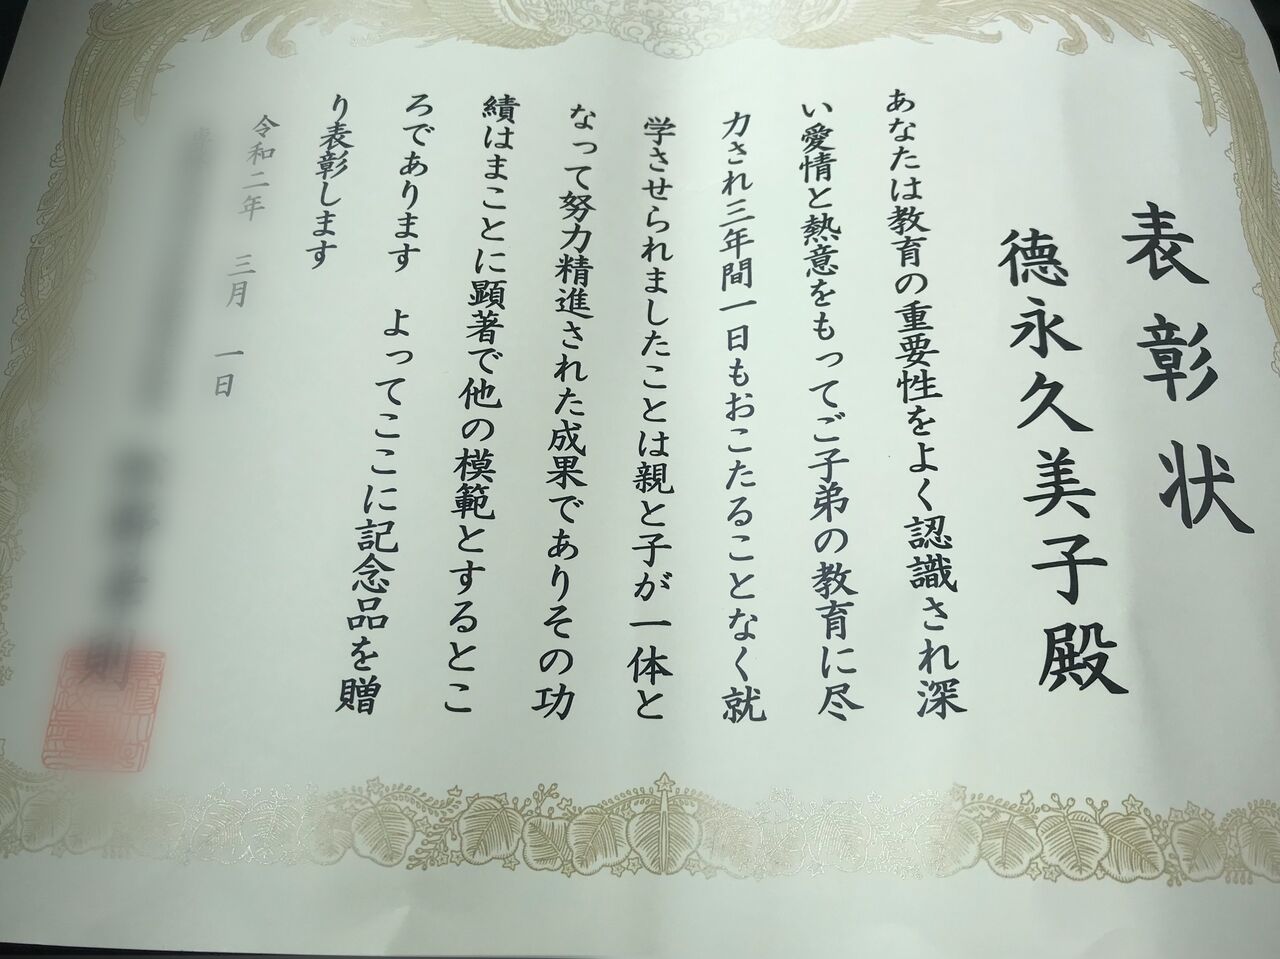 表彰状
徳永久美子殿
あなたは教育の重要性をよく認識され深
い愛情と熱意をもってご子弟の教育に尽
力され三年間一日もおこたることなく就
学させられましたことは親と子が一体と
なって努力精進された成果でありその功
績はまことに顕著で他の模範とするとこ
ろであります　よってここに記念品を贈
り表彰します
令和二年　三月　一日